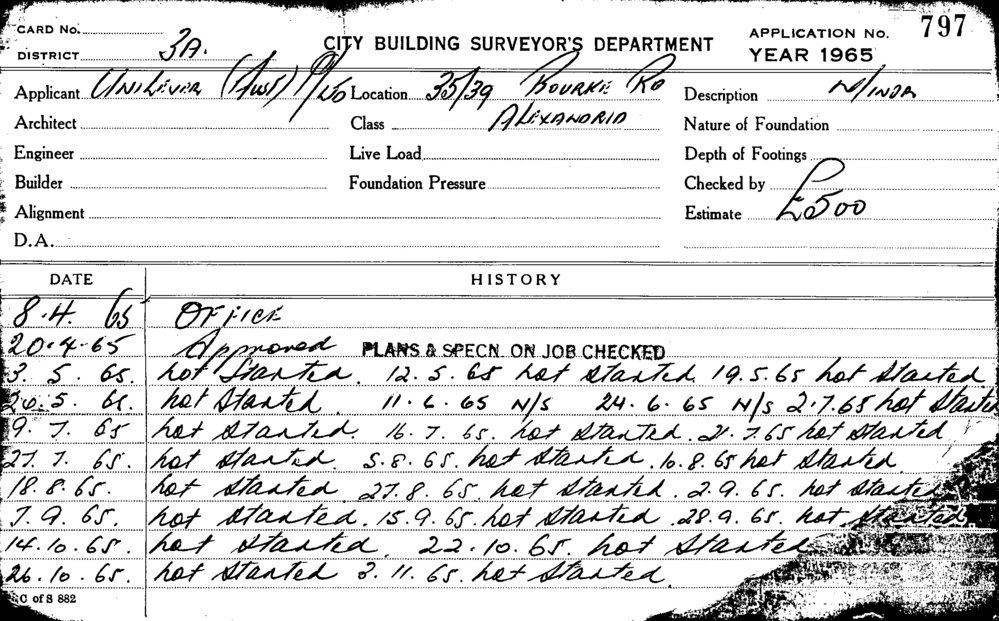 CARD No. CITY BUILDING SURVEYOR'S DEPARTMENT APPLICATION No. 797
DISTRICT 3A. YEAR 1965
Applicant Unilever (Aust) P/Ltd Location 35/39 Bourke Rd Description W/indr
Architect Class Alexandria Nature of Foundation
Engineer Live Load Depth of Footings
Builder Foundation Pressure Checked by
Alignment Estimate £500
D.A.
DATE HISTORY
8.4.65 OFFICE
20.4.65 Approved PLANS & SPECN. ON JOB CHECKED
3.5.65. not started. 12.5.65 not started. 19.5.65 not started
26.5.65. not started. 11.6.65 N/S 24.6.65 N/S 2.7.65 not started
9.7.65 not started. 16.7.65. not started. 21.7.65 not started
27.7.65. not started. 5.8.65. not started. 10.8.65 not started.
18.8.65. not started. 27.8.65. not started. 2.9.65. not started
7.9.65. not started. 15.9.65. not started. 28.9.65. not started
14.10.65. not started. 22.10.65. not started
26.10.65. not started 3.11.65. not started.
C of S 882